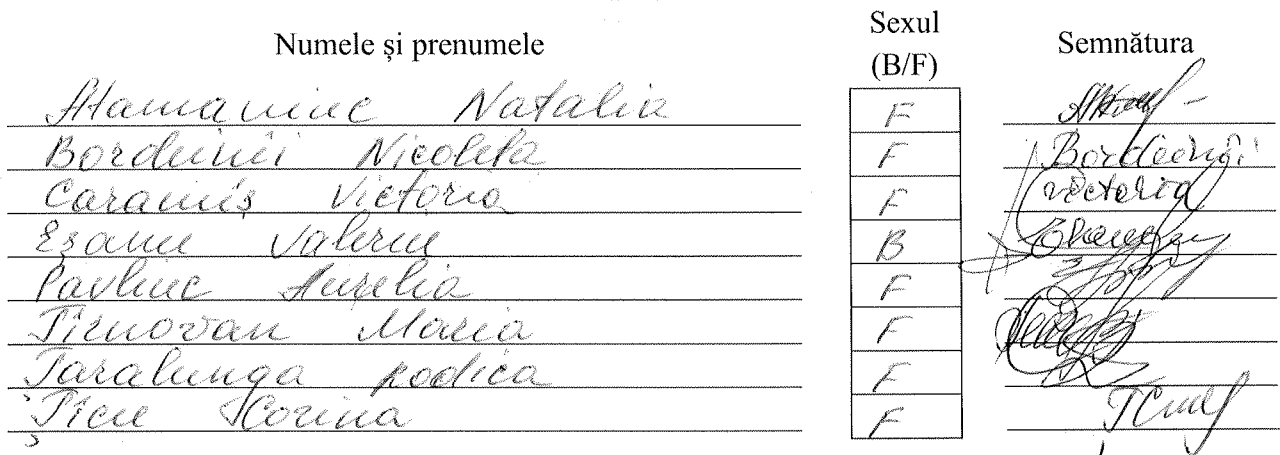 Numele și prenumele Sexul (B/F) Semnătura
Atamaniuc Natalia F
Borduinii Nicoleta F
Caramiș Victoria F Victoria
Eșanu Valeriu B
Pavliuc Aurelia F
Tîrnovan Maria F
Taralunga Rodica F
Țîcu Corina F